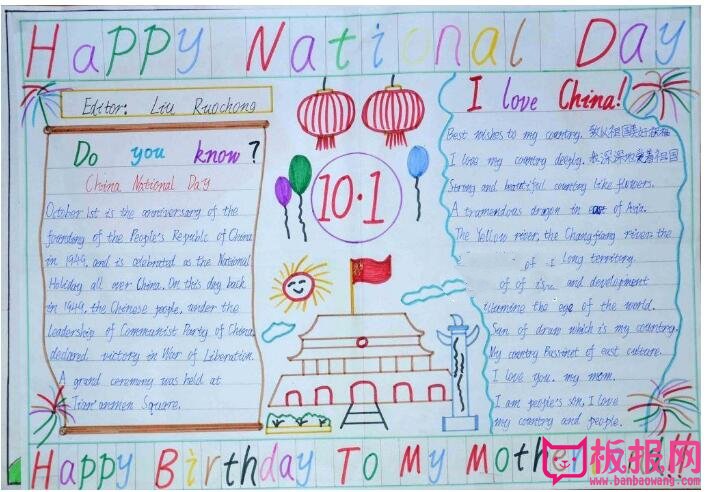 Happy National Day
Editor: Liu Ruochong
Do you know?
China National Day
October 1st is the anniversary of the
founding of the People's Republic of China
in 1949, and is celebrated as the National
Holiday all over China. On this day back
in 1949, the Chinese people, under the
leadership of Communist Party of China,
declared victory in War of Liberation.
A grand ceremony was held at
Tian'anmen Square.
10·1
I love China!
Best wishes to my country. 致以祖国美好祝福
I love my country deeply. 我深深地爱着祖国
Strong and beautiful country like flowers.
A tramendous dragon in east of Asia.
The Yellow river, the Changjiang river, the
of long territory
of of and development
the ege of the world.
Sun of drawn which is my country.
My country Bassinet of east culture.
I love you. my mom.
I am people's son, I love
my country and people.
Happy Birthday To My Motherland!!
板报网
www.banbaowang.com